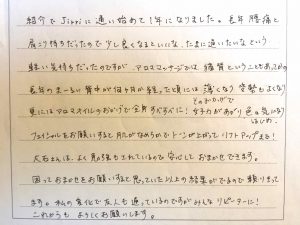 紹介で Jippi に通い始めて1年になりました。長年 腰痛と
肩こり持ちだったので少し良くなるといいな、たまに通いたいなという
軽い気持ちだったのですが アロママッサージでは 体質ということもあってか
長年のまーるい背中が何ヶ月か経った頃には 薄くなり 姿勢もよくなり
そのおかげで
更にはアロマオイルのおかげで全身すべすべに! 女子力があがり 色々気になり
はじめ、
フェイシャルをお願いすると 肌がなめらかで トーンが上がって リフトアップまで!
さんは、よく勉強もされているので安心しておまかせできます。
困っておまかせをお願いすると思っていた以上の結果がでるので頼りまくって
ます。私の変化で友人も通っているのですがみんなリピーターに!
これからも よろしくお願いします。